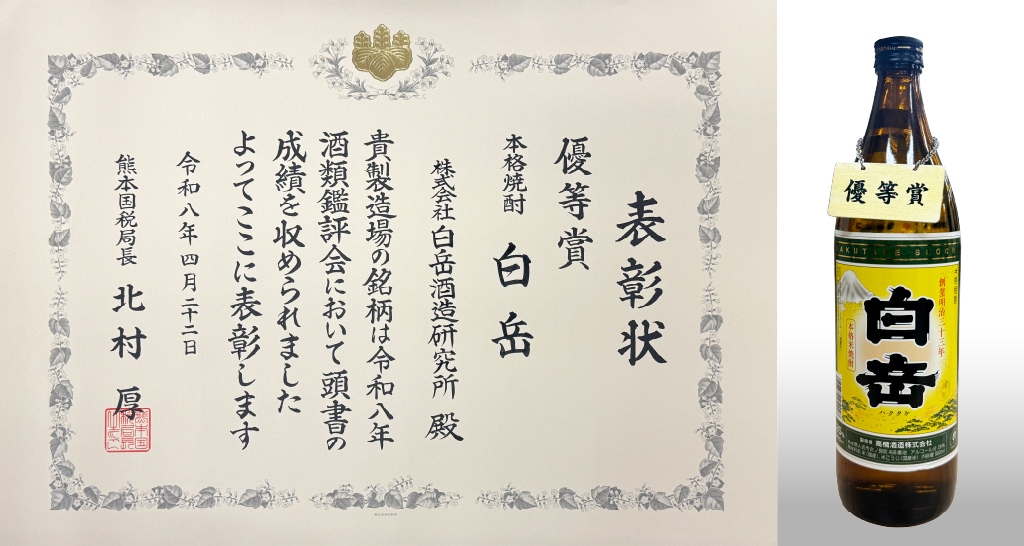 表彰状
優等賞
本格焼酎 白岳
株式会社 白岳酒造研究所 殿
貴製造場の銘柄は令和八年
酒類鑑評会において頭書の
成績を収められました
よってここに表彰します
令和八年四月二十二日
熊本国税局長 北村 厚
優等賞
本格焼酎
創業明治三十三年
白岳
本格米焼酎
ハクタケ
高橋酒造株式会社